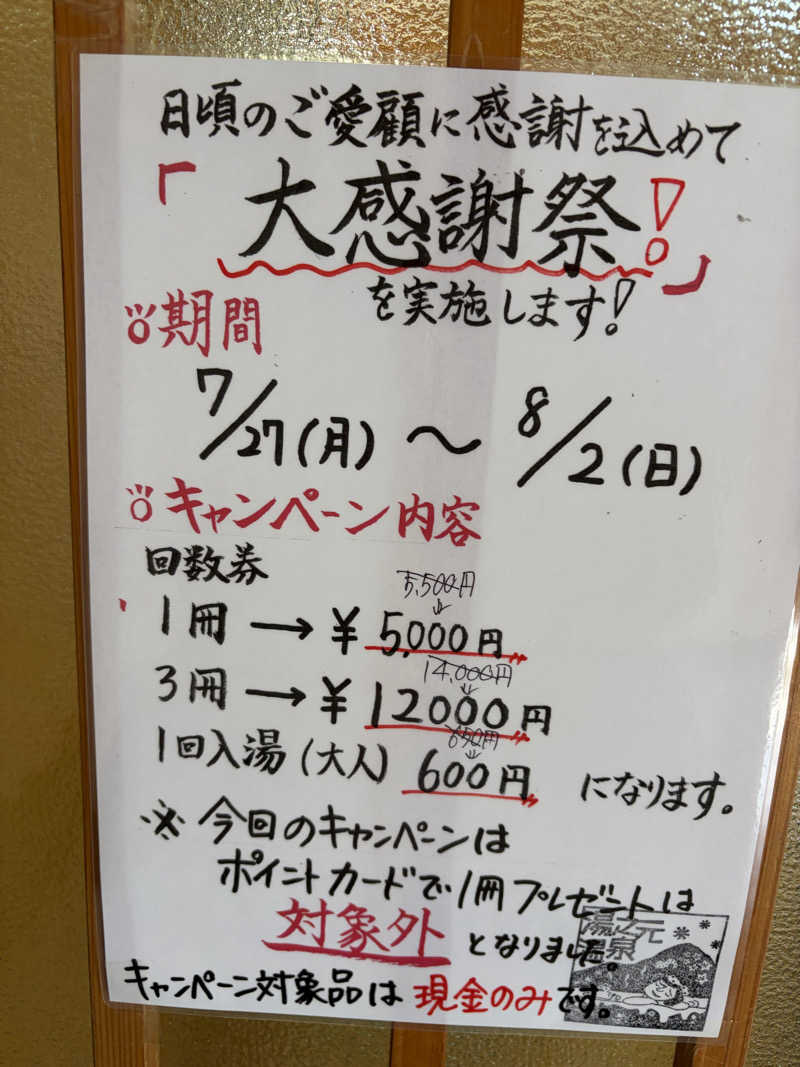 日頃のご愛顧に感謝を込めて
「大感謝祭!」
を実施します!
期間
7/27(月)～8/2(日)
キャンペーン内容
回数券
5,500円
1冊→¥5,000円
14,000円
3冊→¥12000円
650円
1回入湯(大人) 600円 になります。
※今回のキャンペーンは
ポイントカードで1冊プレゼントは
対象外となりました。
キャンペーン対象品は現金のみです。
湯之元
温泉